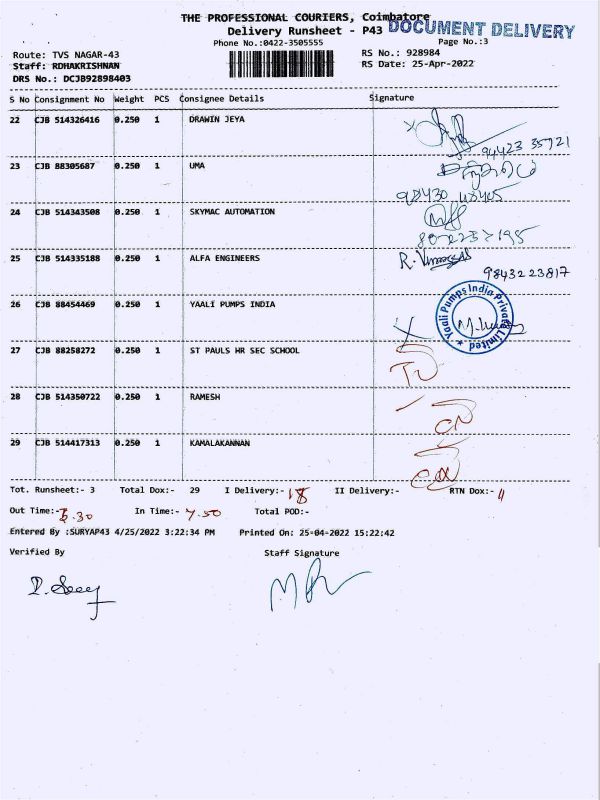 THE PROFESSIONAL COURIERS, Coimbatore
DOCUMENT DELIVERY
Delivery Runsheet - P43
Phone No.:0422-3505555
Page No.:3
Route: TVS NAGAR-43
RS No.: 928984
Staff: RDHAKRISHNAN
RS Date: 25-Apr-2022
DRS No.: DCJB92898403
S No Consignment No Weight PCS Consignee Details Signature
22 CJB 514326416 0.250 1 DRAWIN JEYA
94423 35721
23 CJB 88305687 0.250 1 UMA
24 CJB 514343508 0.250 1 SKYMAC AUTOMATION
25 CJB 514335188 0.250 1 ALFA ENGINEERS
9843223817
26 CJB 88454469 0.250 1 YAALI PUMPS INDIA
Yaali Pumps India Private Limited
27 CJB 88258272 0.250 1 ST PAULS HR SEC SCHOOL
28 CJB 514350722 0.250 1 RAMESH
29 CJB 514417313 0.250 1 KAMALAKANNAN
Tot. Runsheet:- 3 Total Dox:- 29 I Delivery:- 18 II Delivery:- RTN Dox:- 11
Out Time:- 3.30 In Time:- 7.50 Total POD:-
Entered By :SURYAP43 4/25/2022 3:22:34 PM Printed On: 25-04-2022 15:22:42
Verified By Staff Signature